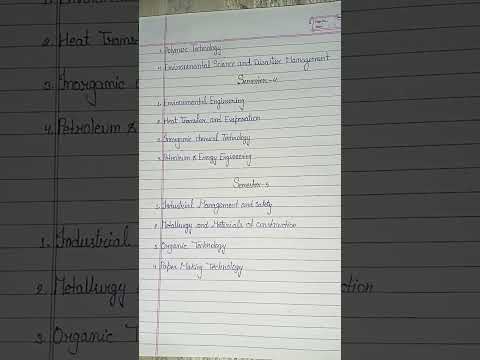 3. Polymer Technology
4. Environmental Science and Disaster Management
Semester-4
1. Environmental Engineering
2. Heat Transfer and Evaporation
3. Inorganic chemical Technology
4. Petroleum & Energy Engineering
Semester-5
1. Industrial Management and safety
2. Metallurgy and Materials of construction
3. Organic Technology
4. Paper Making Technology